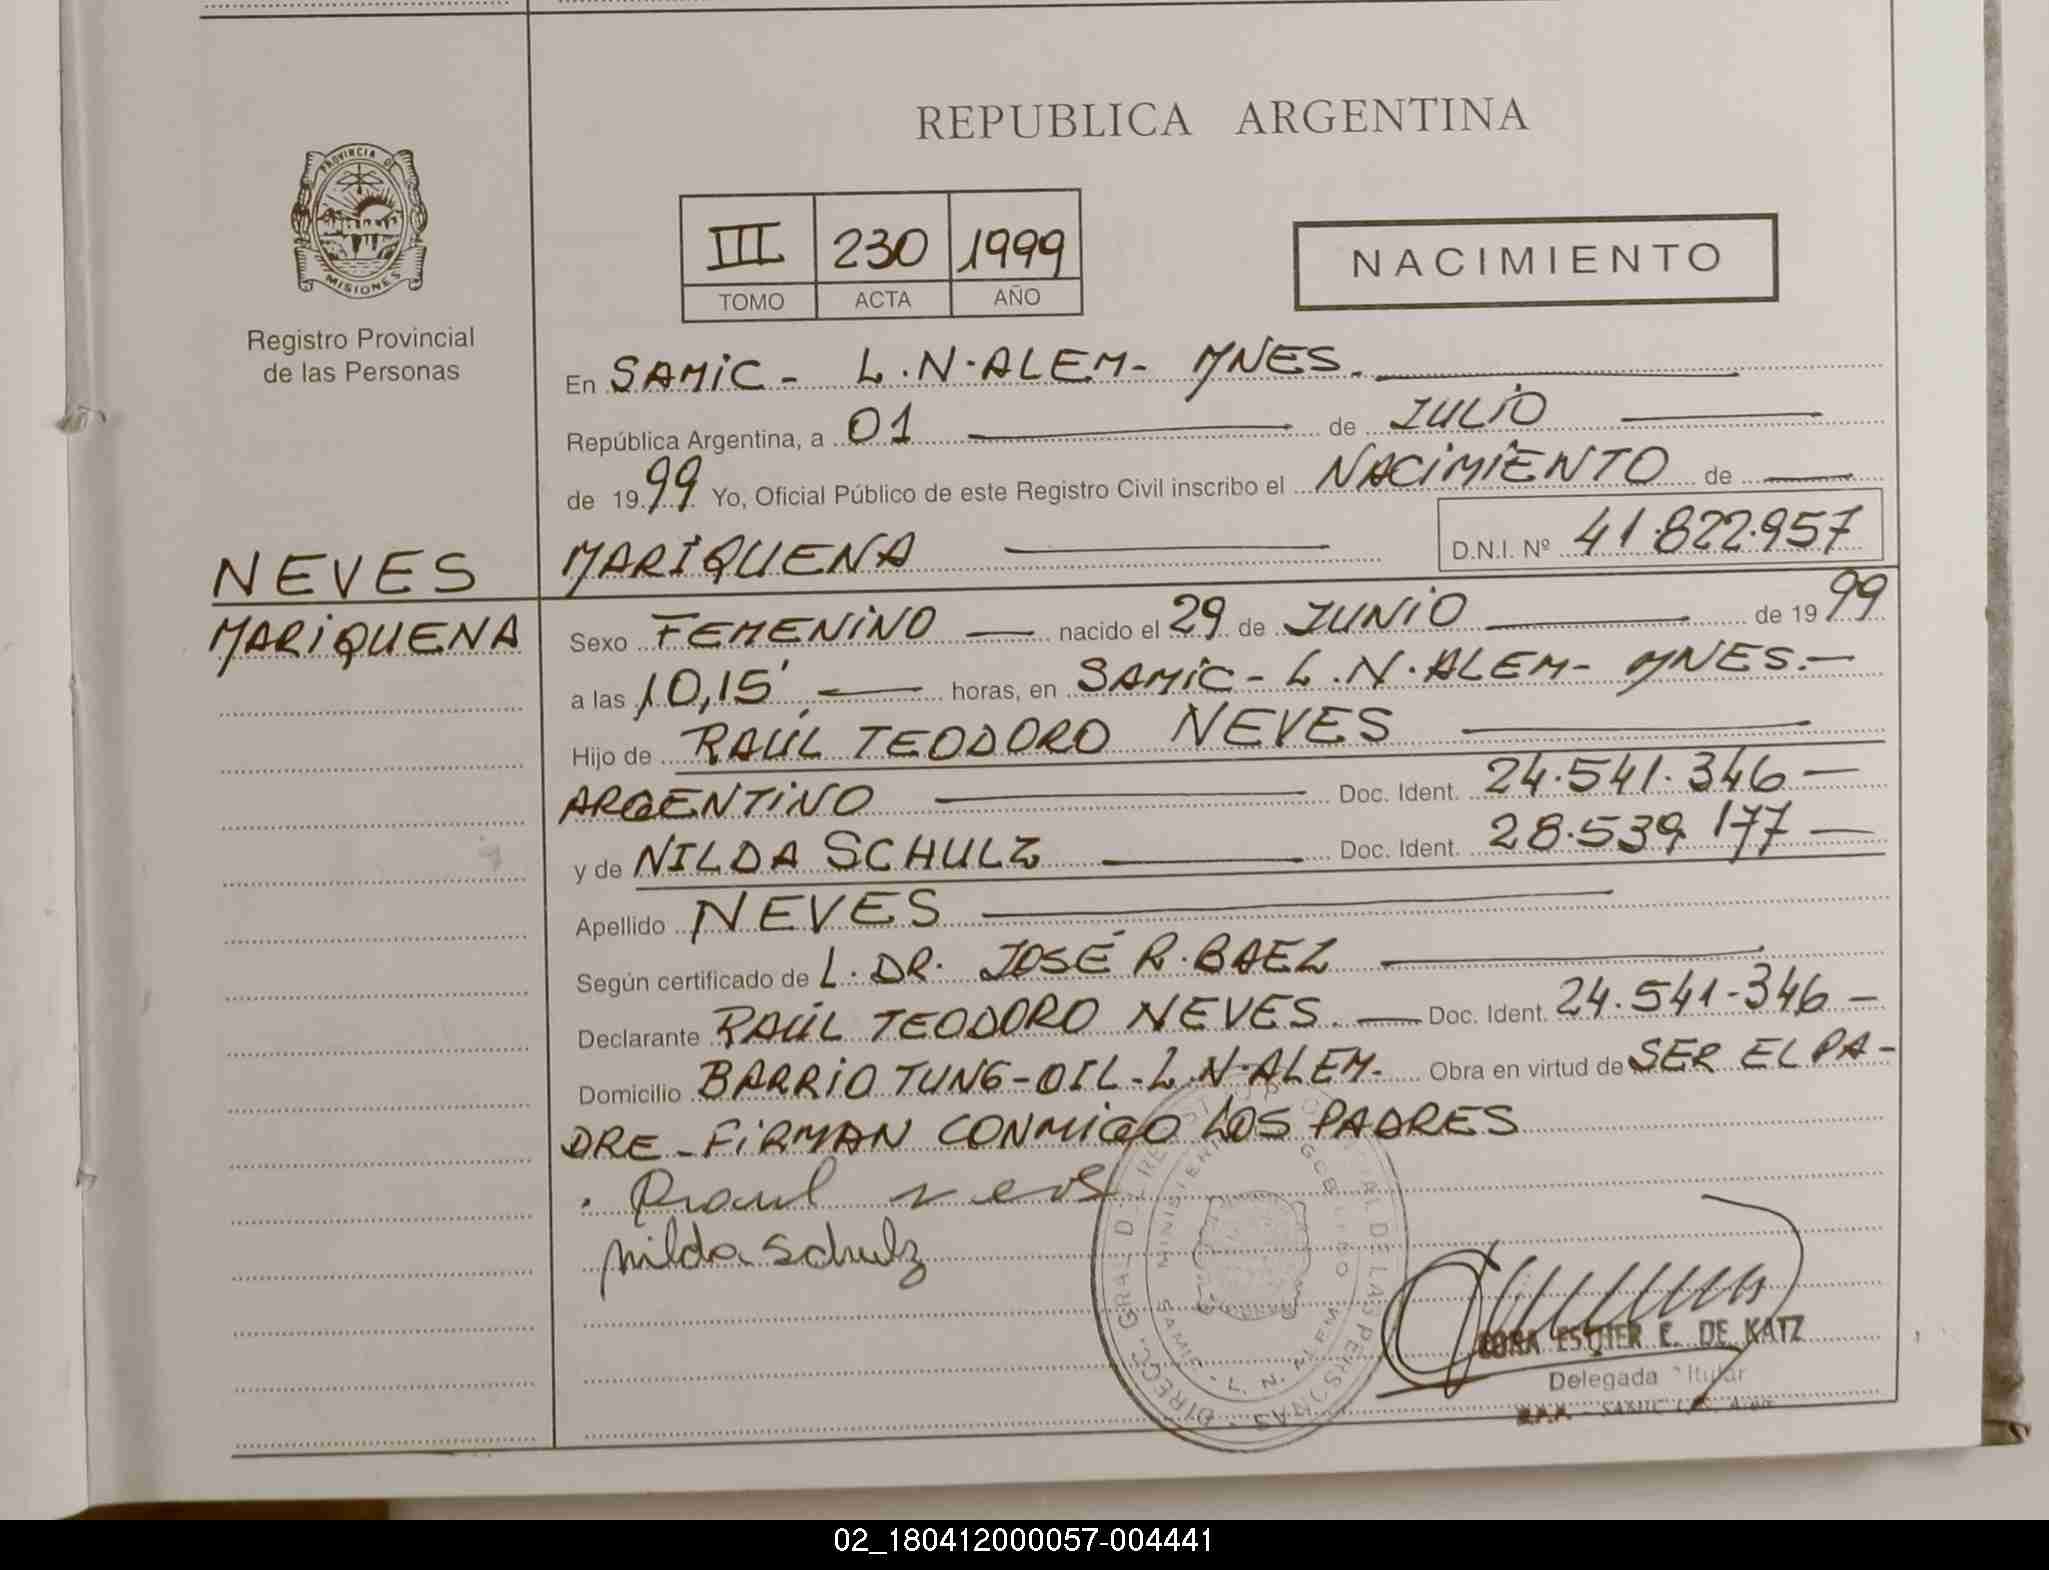 REPUBLICA ARGENTINA
PROVINCIA D
MISIONES
Registro Provincial
de las Personas
III 230 1999
TOMO ACTA AÑO
NACIMIENTO
En SAMIC - L.N.ALEM - MNES.
República Argentina, a 01 de JULIO
de 1999 Yo, Oficial Público de este Registro Civil inscribo el NACIMIENTO de
MARIQUENA D.N.I. Nº 41.822.957
NEVES
MARIQUENA
Sexo FEMENINO nacido el 29 de JUNIO de 1999
a las 10,15' horas, en SAMIC - L.N.ALEM - MNES.-
Hijo de RAÚL TEODORO NEVES
ARGENTINO Doc. Ident. 24.541.346 -
y de NILDA SCHULZ Doc. Ident. 28.539.177 -
Apellido NEVES
Según certificado de L. DR. JOSÉ R. BAEZ
Declarante RAÚL TEODORO NEVES. - Doc. Ident. 24.541.346 -
Domicilio BARRIO TUNG-OIL-L.N.ALEM- Obra en virtud de SER EL PA-
DRE - FIRMAN CONMIGO LOS PADRES
Raul neves
nilda schulz
DIRECC. GRAL. D REGISTRO PROVINCIAL DE LAS PERSONAS
MINISTERIO GOBIERNO
SAMIC - L. N. ALEM
ESTHER E. DE KATZ
Delegada Titular
02_180412000057-004441